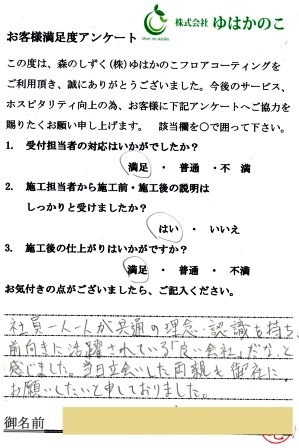 株式会社 ゆはかのこ
お客様満足度アンケート
この度は、森のしずく(株)ゆはかのこフロアコーティングを
ご利用頂き、誠にありがとうございました。今後のサービス、
ホスピタリティ向上の為、お客様に下記アンケートへご協力を
賜りたくお願い申し上げます。 該当欄を○で囲って下さい。
1. 受付担当者の対応はいかがでしたか?
満足 ・ 普通 ・不 満
2. 施工担当者から施工前・施工後の説明は
しっかりと受けましたか?
はい ・ いいえ
3. 施工後の仕上がりはいかがですか?
満足 ・ 普通 ・ 不満
お気付きの点がございましたら、ご記入ください。
社員一人一人が共通の理念・認識を持ち、
前向きに活躍されている「良い会社」だな、と
感じました。当日立会いした両親も御社に
お願いしたいと申しておりました。
御名前